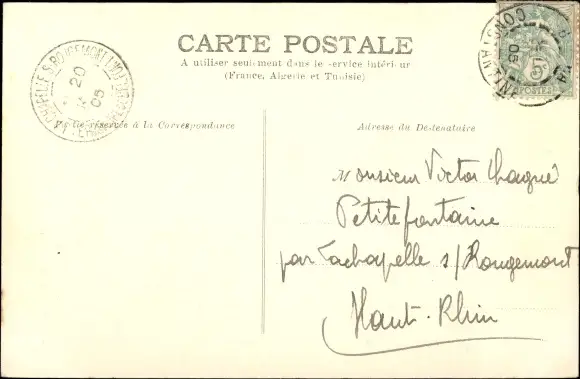 CARTE POSTALE
A utiliser seulement dans le service intérieur
(France, Algérie et Tunisie)
réservée à la Correspondance
Adresse du Destinataire
LACHAPELLE S. ROUGEMONT
20
05
CONSTANTINE
5
POSTES
Monsieur Victor Chagué
Petitefontaine
par Lachapelle s/ Rougemont
Haut-Rhin